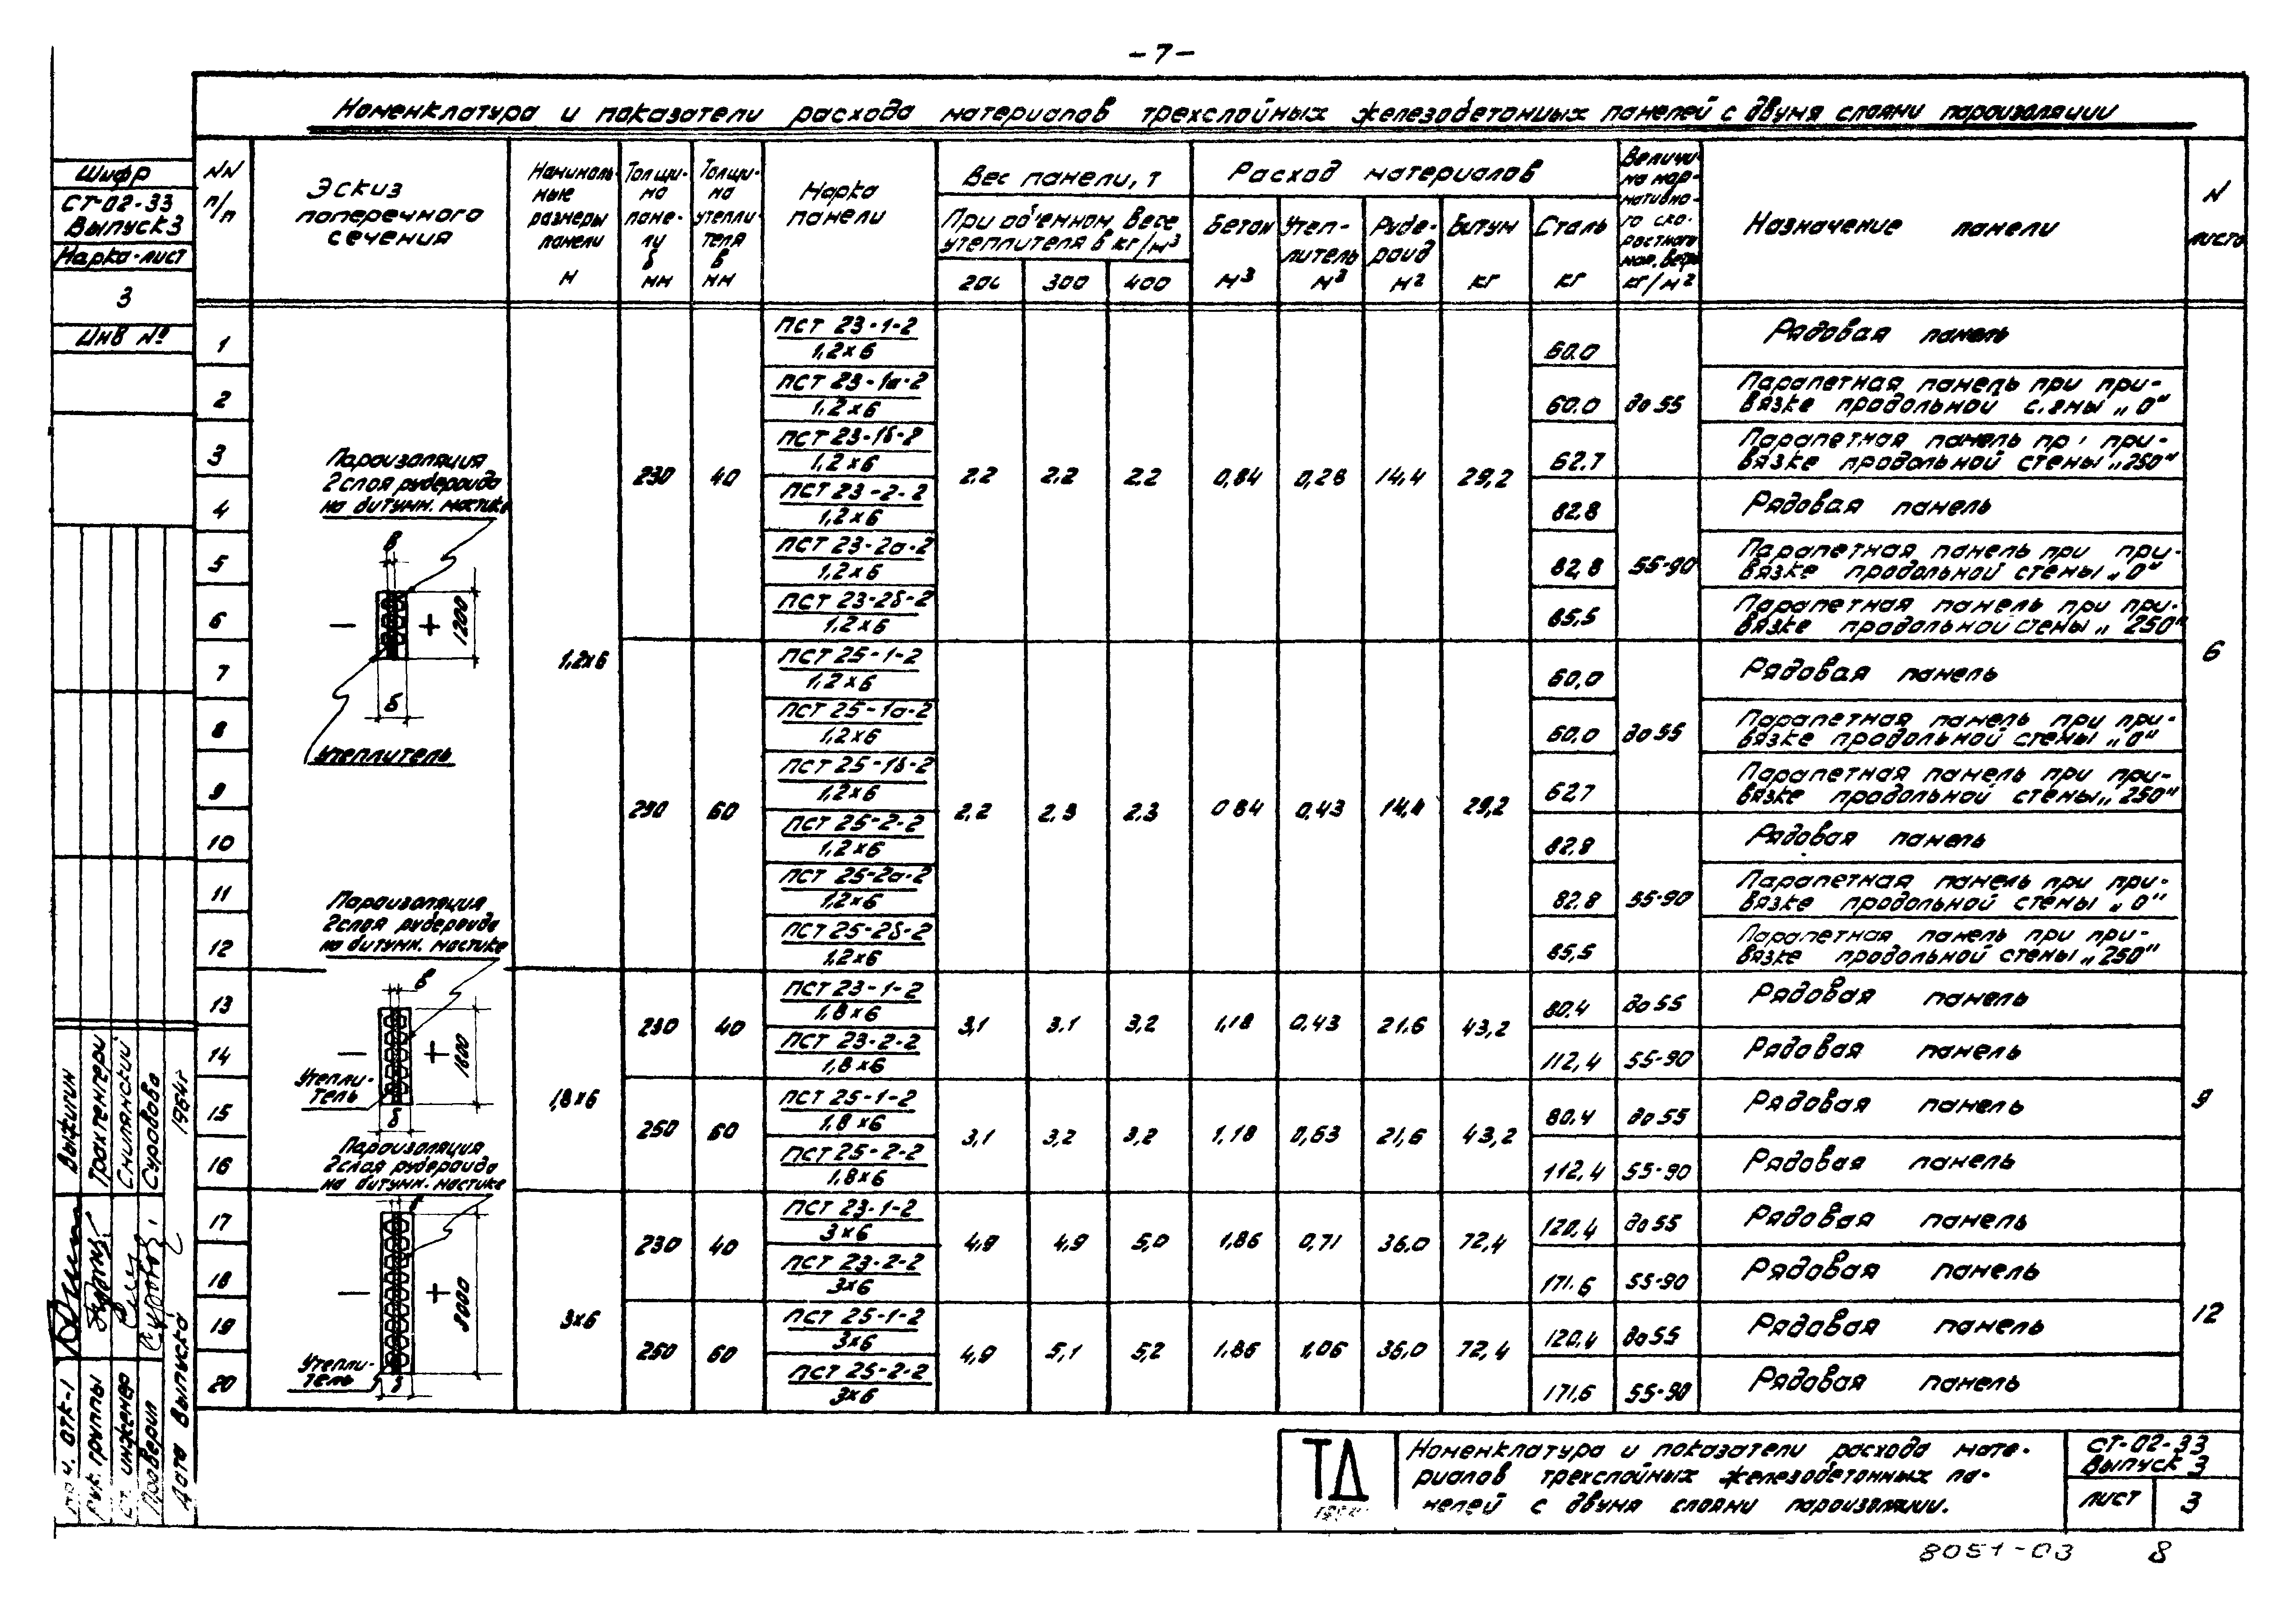 - 7 -
Номенклатура и показатели расхода материалов трехслойных железобетонных панелей с двумя слоями пароизоляции
Шифр
СТ-02-33
Выпуск 3
Марка-лист
3
Инв №
NN п/п
Эскиз поперечного сечения
Номинальные размеры панели м
Толщина панели б мм
Толщина утеплителя в мм
Марка панели
Вес панели, т
При об'емном весе утеплителя в кг/м³
200 300 400
Расход материалов
Бетон м³
Утеплитель м³
Рубероид м²
Битум кг
Сталь кг
Величина нормативного скоростного нап. ветра кг/м²
Назначение панели
N листа
1 ПСТ 23-1-2 / 1,2×6 60.0 Рядовая панель
2 ПСТ 23-1а-2 / 1,2×6 60.0 до 55 Парапетная панель при привязке продольной стены „0"
3 ПСТ 23-1б-2 / 1,2×6 62.7 Парапетная панель при привязке продольной стены „250"
230 40 2.2 2.2 2.2 0,84 0,28 14,4 29,2
4 ПСТ 23-2-2 / 1,2×6 82.8 Рядовая панель
5 ПСТ 23-2а-2 / 1,2×6 82,8 55-90 Парапетная панель при привязке продольной стены „0"
6 ПСТ 23-2б-2 / 1,2×6 85,5 Парапетная панель при привязке продольной стены „250"
1,2×6
6
7 ПСТ 25-1-2 / 1,2×6 60,0 Рядовая панель
8 ПСТ 25-1а-2 / 1,2×6 60.0 до 55 Парапетная панель при привязке продольной стены „0"
9 ПСТ 25-1б-2 / 1,2×6 62.7 Парапетная панель при привязке продольной стены „250"
250 60 2,2 2,3 2.3 0 84 0,43 14,4 29,2
10 ПСТ 25-2-2 / 1,2×6 82,8 Рядовая панель
11 ПСТ 25-2а-2 / 1,2×6 82.8 55-90 Парапетная панель при привязке продольной стены „0"
12 ПСТ 25-2б-2 / 1,2×6 85,5 Парапетная панель при привязке продольной стены „250"
13 ПСТ 23-1-2 / 1,8×6 80.4 до 55 Рядовая панель
230 40 3,1 3.1 3,2 1,18 0,43 21.6 43,2
14 ПСТ 23-2-2 / 1,8×6 112,4 55-90 Рядовая панель
1,8×6
9
15 ПСТ 25-1-2 / 1,8×6 80.4 до 55 Рядовая панель
250 60 3,1 3,2 3,2 1,18 0,63 21,6 43,2
16 ПСТ 25-2-2 / 1,8×6 112,4 55-90 Рядовая панель
17 ПСТ 23-1-2 / 3×6 120,4 до 55 Рядовая панель
230 40 4,9 4,9 5,0 1,86 0,71 36.0 72,4
18 ПСТ 23-2-2 / 3×6 171.6 55-90 Рядовая панель
3×6
12
19 ПСТ 25-1-2 / 3×6 120,4 до 55 Рядовая панель
250 60 4,9 5,1 5,2 1.86 1,06 36,0 72,4
20 ПСТ 25-2-2 / 3×6 171,6 55-90 Рядовая панель
Пароизоляция
2 слоя рубероида
на битумн. мастике
в
- + 1200
б
Утеплитель
Пароизоляция
2 слоя рубероида
на битумн. мастике
в
- + 1800
Утепли-
тель
б
Пароизоляция
2 слоя рубероида
на битумн. мастике
- + 3000
Утепли-
тель
б
ОТК-1 Выжигин
Рук. группы Трахтенгерц
Ст. инженер Смилянский
Проверил Суровова
Дата выпуска 1964г
ТД
Номенклатура и показатели расхода мате-
риалов трехслойных железобетонных па-
нелей с двумя слоями пароизоляции.
СТ-02-33
Выпуск 3
лист 3
8051-03 8